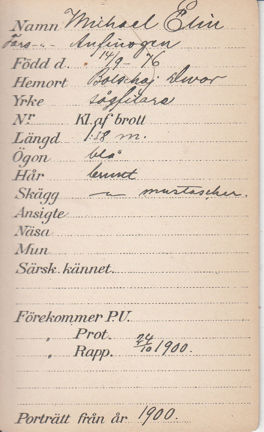 Namn Michael Elin
Fars-n- Anfinogen
Född d. 14/9 - 76
Hemort Bolschoj Dwor
Yrke sågfilare
Nr Kl. af brott
Längd 1.78 m.
Ögon blå
Hår brunt
Skägg -"- mustascher.
Ansigte
Näsa
Mun
Särsk. kännet.
Förekommer P.U.
" Prot.
" Rapp. 24/10 1900.
Porträtt från år 1900.